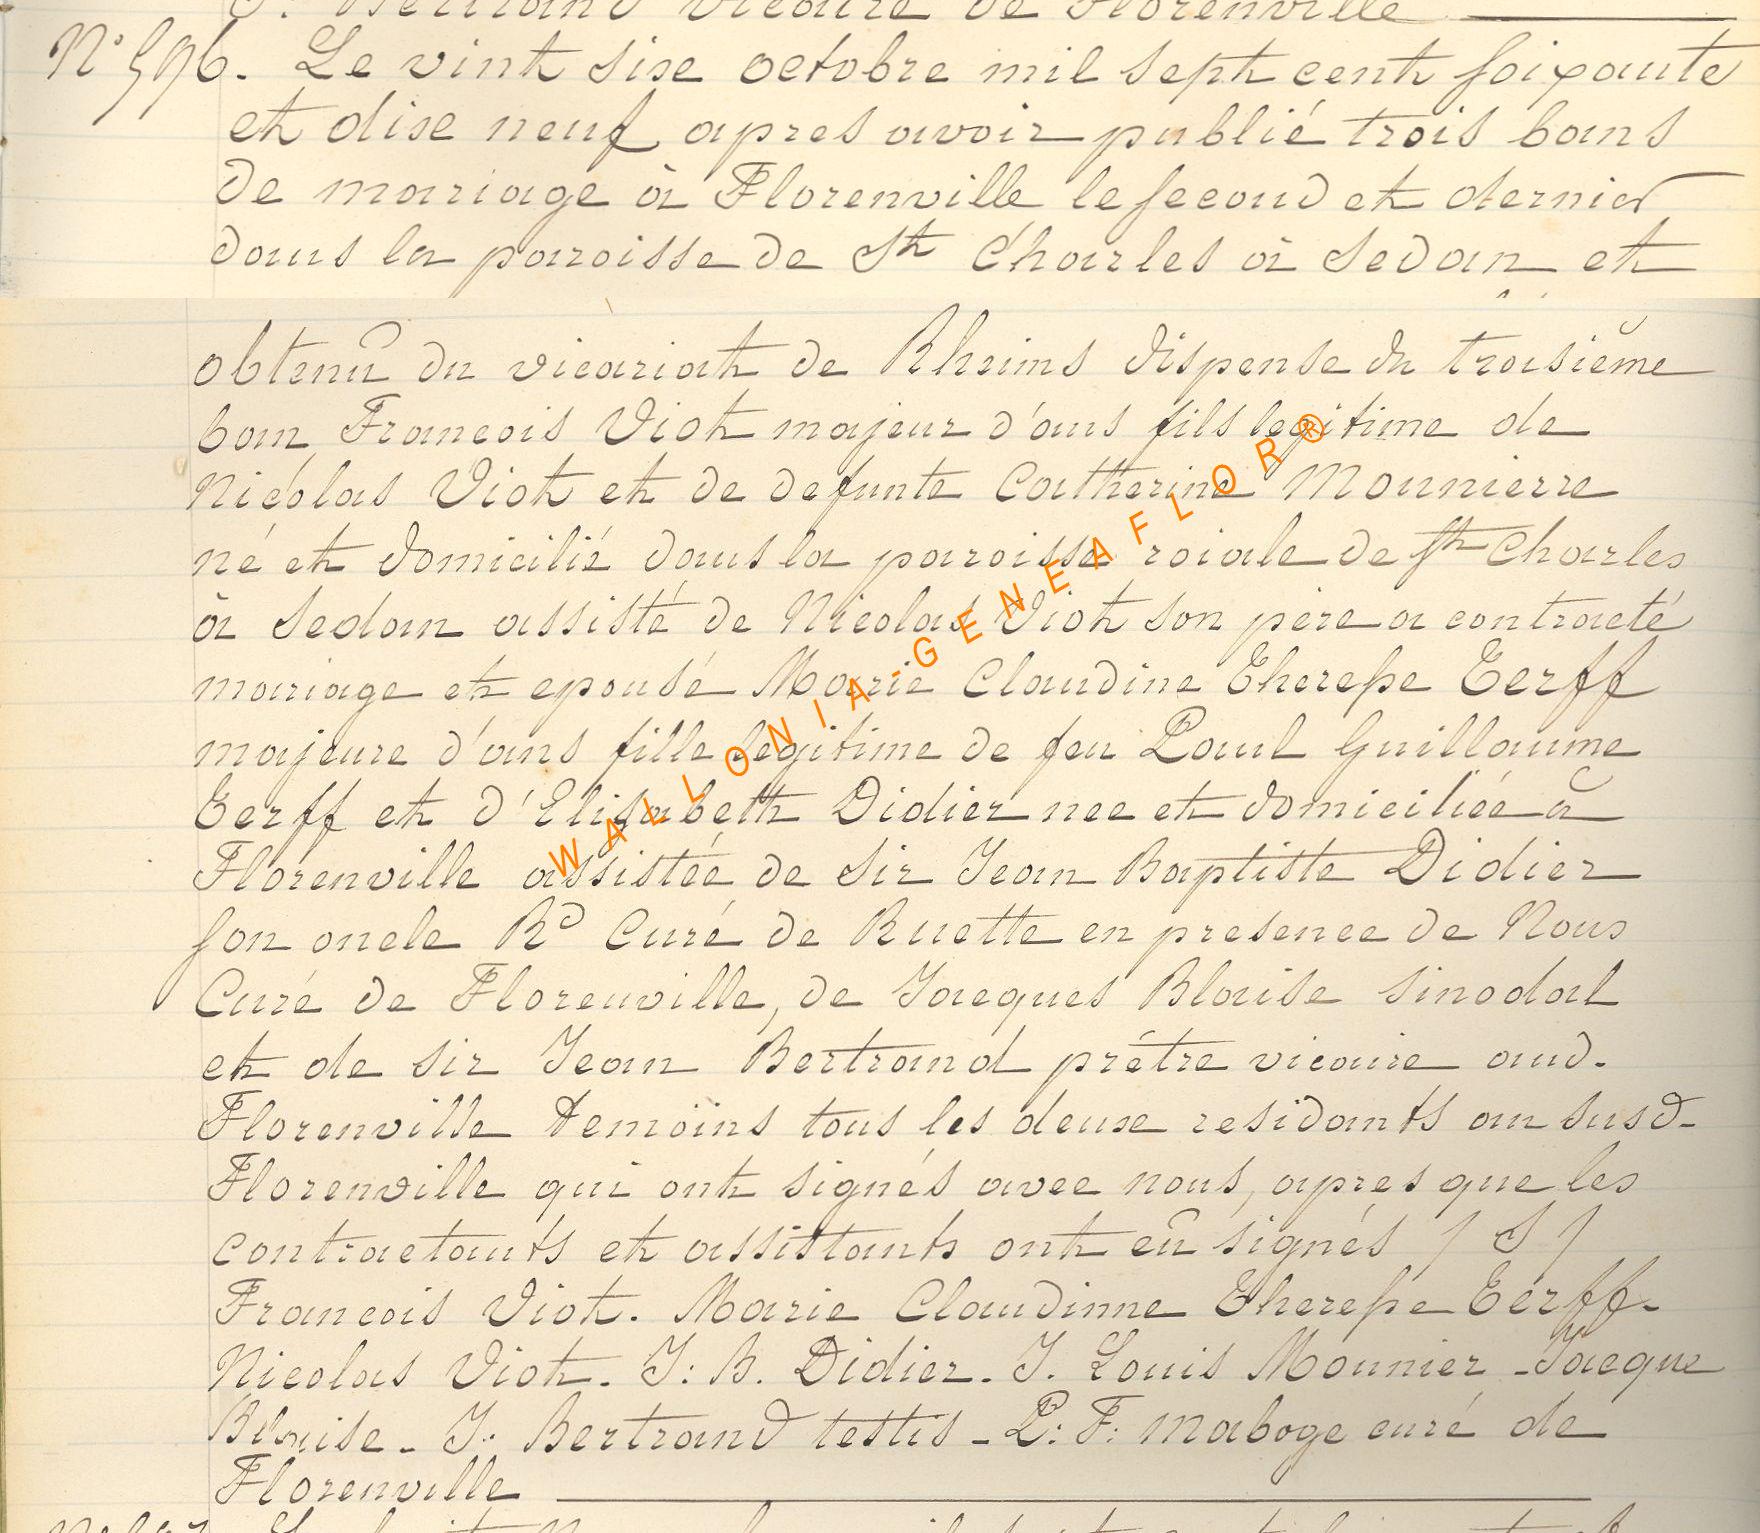 J. Bertrand vicaire de Florenville
N° 596. Le vint six octobre mil sept cent soixante
et dix neuf apres avoir publié trois bans
de mariage à Florenville le second et dernier
dans la paroisse de St Charles à Sedan et
obtenû du vicariat de Rheims dispense du troisième
ban Francois Viot majeur d'ans fils legitime de
Nicolas Viot et de defunte Catherine Mounierre
né et domicilié dans la paroisse roiale de St Charles
à Sedan assisté de Nicolas Viot son père a contracté
mariage et epousé Marie Claudine Therese Eerff
majeure d'ans fille legitime de feu Paul Guillaume
Eerff et d'Elisabeth Didier nee et domiciliée à
Florenville assistée de Sir Jean Baptiste Didier
son oncle Rd Curé de Ruette en presence de Nous
Curé de Florenville, de Jacques Blaise sinodal
et de sir Jean Bertrand prêtre vicaire aud.
Florenville temoins tous les deux residants au susd.
Florenville qui ont signés avec nous, apres que les
contractants et assistants ont eû signés / S /
Francois Viot. Marie Claudinne Therese Eerff.
Nicolas Viot. J: B. Didier. J. Louis Mounier - Jacque
Blaise - J. Bertrand testis - P: F: Maboge curé de
Florenville
WALLONIA-GENEAFLOR®